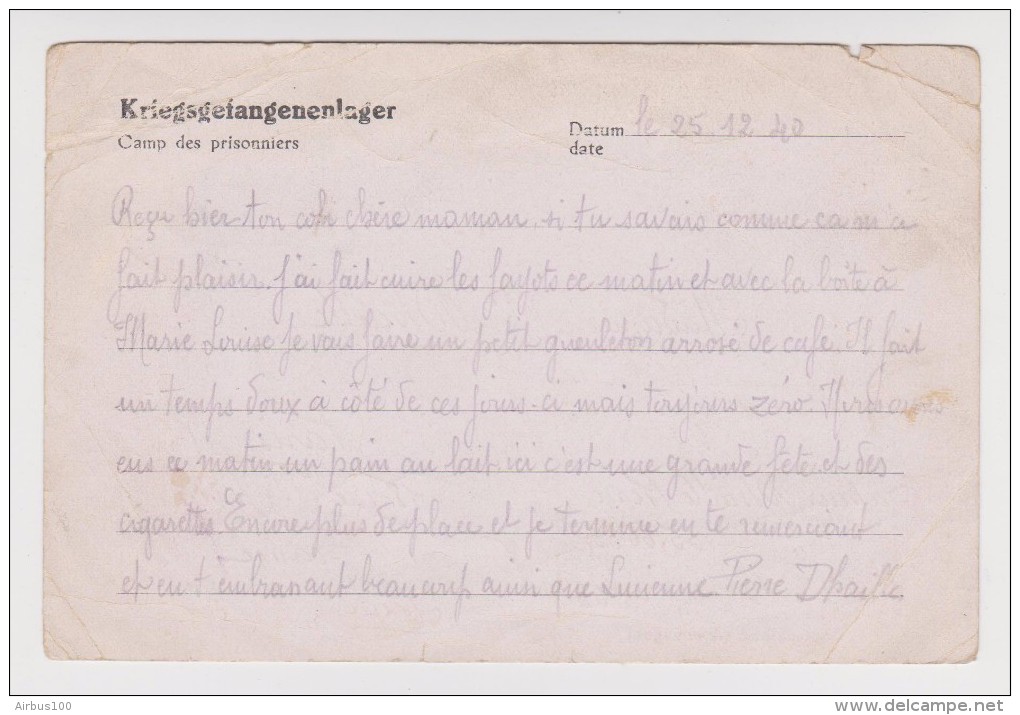 Kriegsgefangenenlager
Camp des prisonniers
Datum le 25 12 40
date
Reçu hier ton coli chère maman, si tu savais comme ca m'a
fait plaisir. J'ai fait cuire les fayots ce matin et avec la boîte à
Marie Louise Je vais faire un petit gueuleton arrosé de café. Il fait
un temps doux à côté de ces jours-ci mais toujours zéro. Nous avons
eus ce matin un pain au lait ici c'est une grande fête et des
cigarettes Encore plus de place et je termine en te remerciant
et en t'embrassant beaucoup ainsi que Lucienne Pierre
Airbus100
delcampe.net